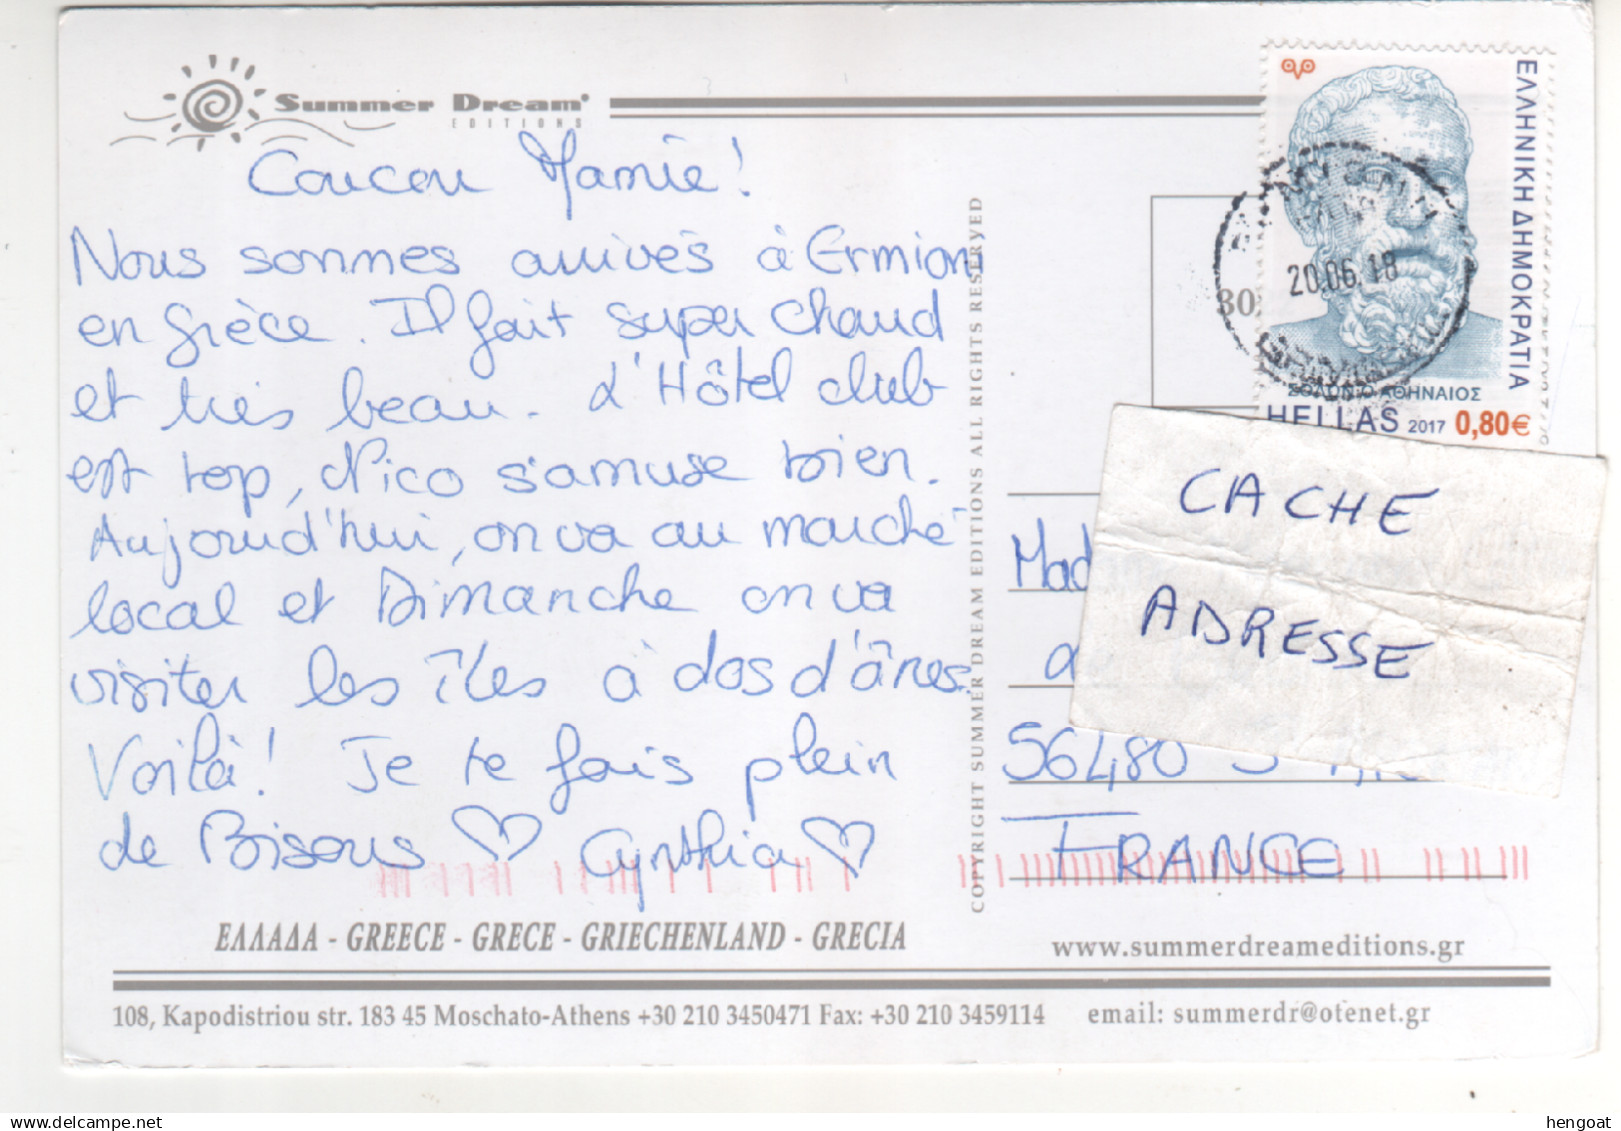 Summer Dream
EDITIONS
Coucou Mamie!
Nous sommes arrivés à Ermioni
en Grèce. Il fait super chaud
et très beau. L'Hôtel club
est top, Nico s'amuse bien.
Aujourd'hui, on va au marché
local et Dimanche on va
visiter les îles à dos d'ânes.
Voilà! Je te fais plein
de Bisous ♡ Cynthia ♡
ΕΛΛΑΔΑ - GREECE - GRECE - GRIECHENLAND - GRECIA
108, Kapodistriou str. 183 45 Moschato-Athens +30 210 3450471 Fax: +30 210 3459114 email: summerdr@otenet.gr
COPYRIGHT SUMMER DREAM EDITIONS ALL RIGHTS RESERVED
ΕΛΛΗΝΙΚΗ ΔΗΜΟΚΡΑΤΙΑ
20.06.18
30
ΑΘΗΝΑΙΟΣ
HELLAS 2017 0,80€
CACHE
ADRESSE
Mad
56480
FRANCE
www.summerdreameditions.gr
hengoat